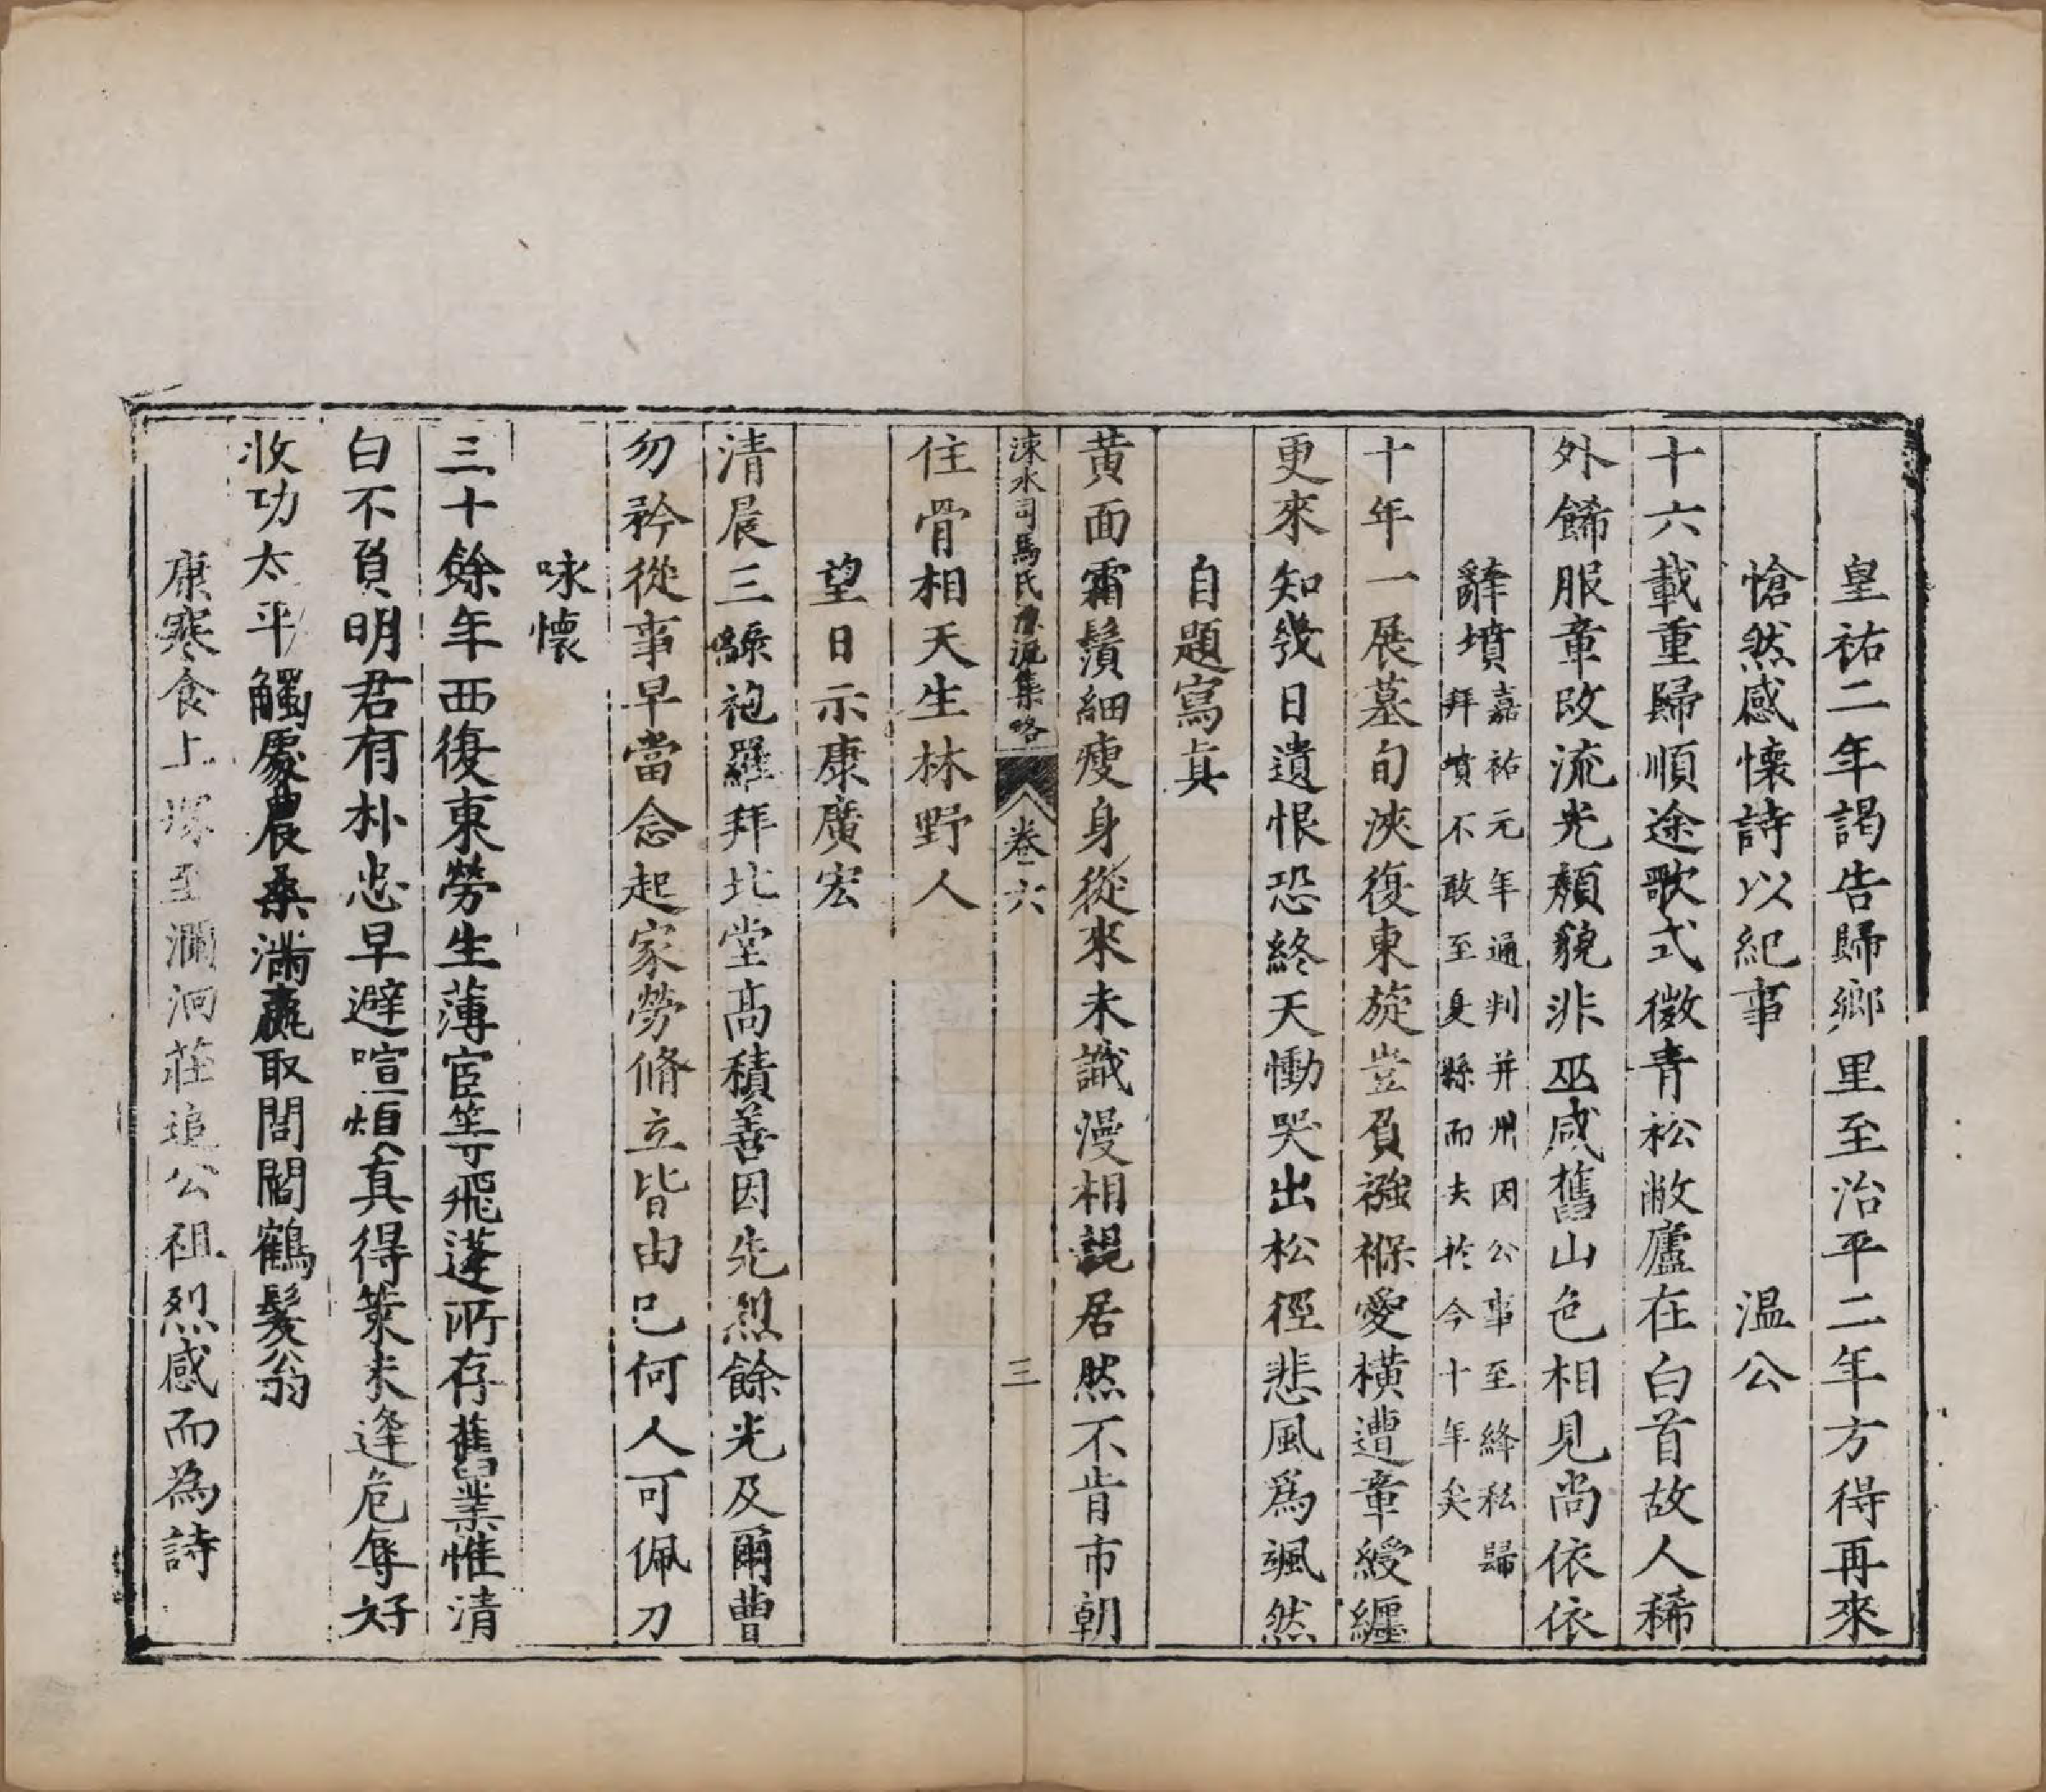 皇祐二年謁告歸鄉里至治平二年方得再來
愴然感懷詩以紀事　温公
十六載重歸順途歌式微青松敝廬在白首故人稀
外餙服章改流光頽貌非巫咸舊山色相見尚依依
辭墳嘉祐元年通判并州因公事至絳私歸
拜墳不敢至夏縣而去於今十年矣
十年一展墓旬浹復東旋豈負襁褓愛橫遭章綬纏
更來知幾日遺恨恐終天慟哭出松徑悲風爲颯然
自題寫真
黄面霜鬚細瘦身從來未識漫相親居然不肯市朝
涑水司馬氏源流集略　卷六　三
住骨相天生林野人
望日示康廣宏
清晨三綠袍羅拜北堂高積善因先烈餘光及爾曹
勿矜從事早當念起家勞脩立皆由己何人可佩刀
咏懷
三十餘年西復東勞生薄宦等飛蓬所存舊業惟清
白不負明君有朴忠早避喧煩真得策未逢危辱好
收功太平觸處農桑滿贏取閭閻鶴髮翁
康寒食上塚至瀾洄莊追公祖烈感而為詩